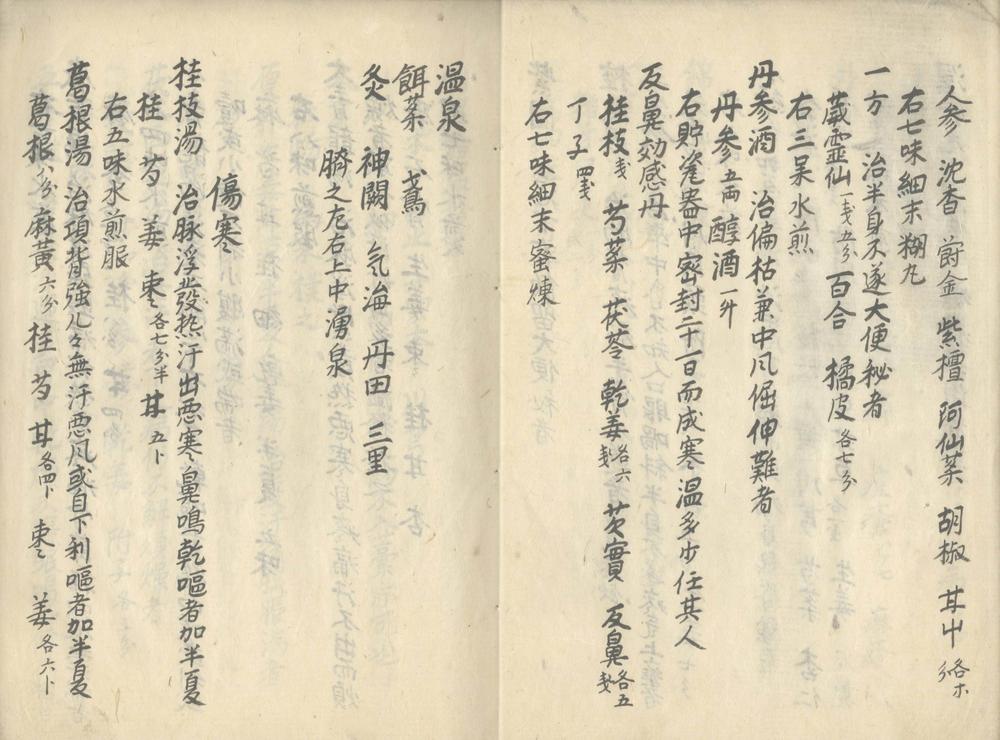 人参 沈香 欝金 紫檀 阿仙菜 胡椒 甘中 各等分
右七味細末糊丸
一方 治半身不遂大便秘者
葳霊仙 一戔五分 百合 橘皮 各七分
右三味水煎
丹参酒 治偏枯兼中凨倔伸難者
丹参 五両 醇酒 一升
右貯瓷器中密封二十一日而成寒温多少任其人
反鼻効感丹
桂枝 戔 芍菜 茯苓 乾姜 各六戔 芡實 反鼻 各五戔
丁子 四戔
右七味細末蜜煉
温泉
餌菜 弋鳶
灸 神闕 気海 丹田 三里
臍之左右上中湧泉
傷寒
桂枝湯 治脉浮発热汗出悪寒鼻鳴乾嘔者加半夏
桂 芍 姜 棗 各七分半 甘 五卜
右五味水煎服
葛根湯 治項背強几々無汗悪凨或自下利嘔者加半夏
葛根 八分 麻黄 六分 桂 芍 甘 各四卜 棗 姜 各六卜